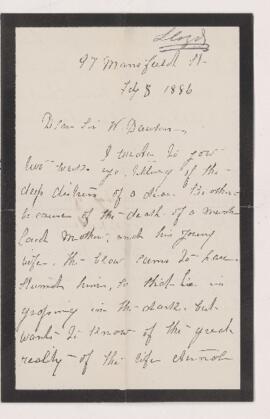 Lloyd
97 Mansfield St.
Feby 8 1886
Dear Sir W. Dawson,
I under to you
but write you, telling of the
deep distress of a dear Brother
because of the death of a much
loved Mother, and his young
wife. The blow seems to have
stunned him, so that he is
groping in the dark. but
wants to know of the great
reality of the life